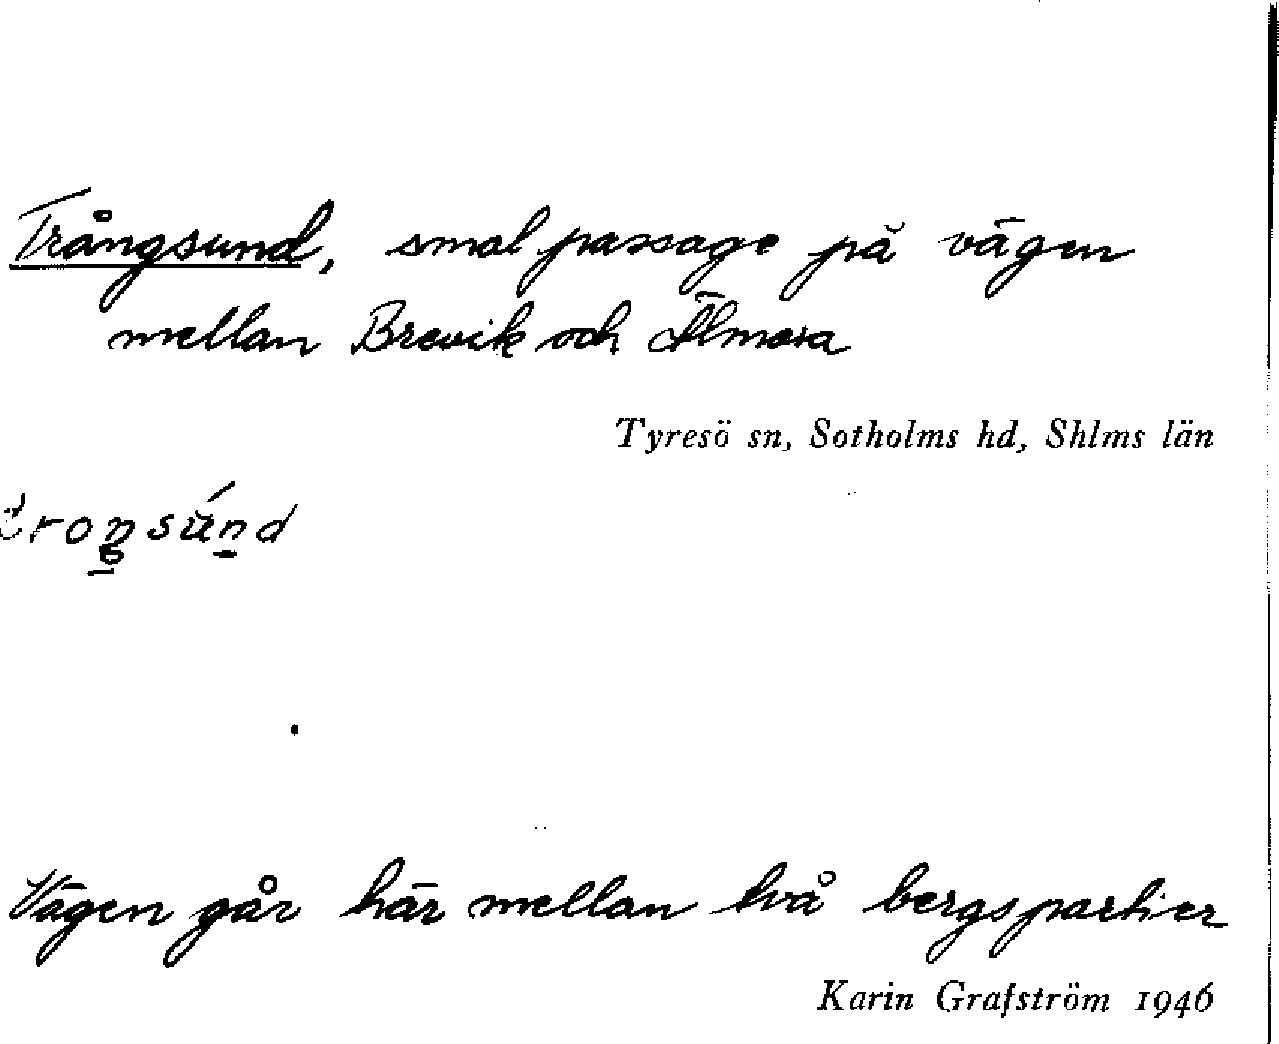 Trångsund, smal passage på vägen
mellan Brevik och Älmora
Tyresö sn, Sotholms hd, Shlms län
Vägen går här mellan två bergspartier
Karin Grafström 1946